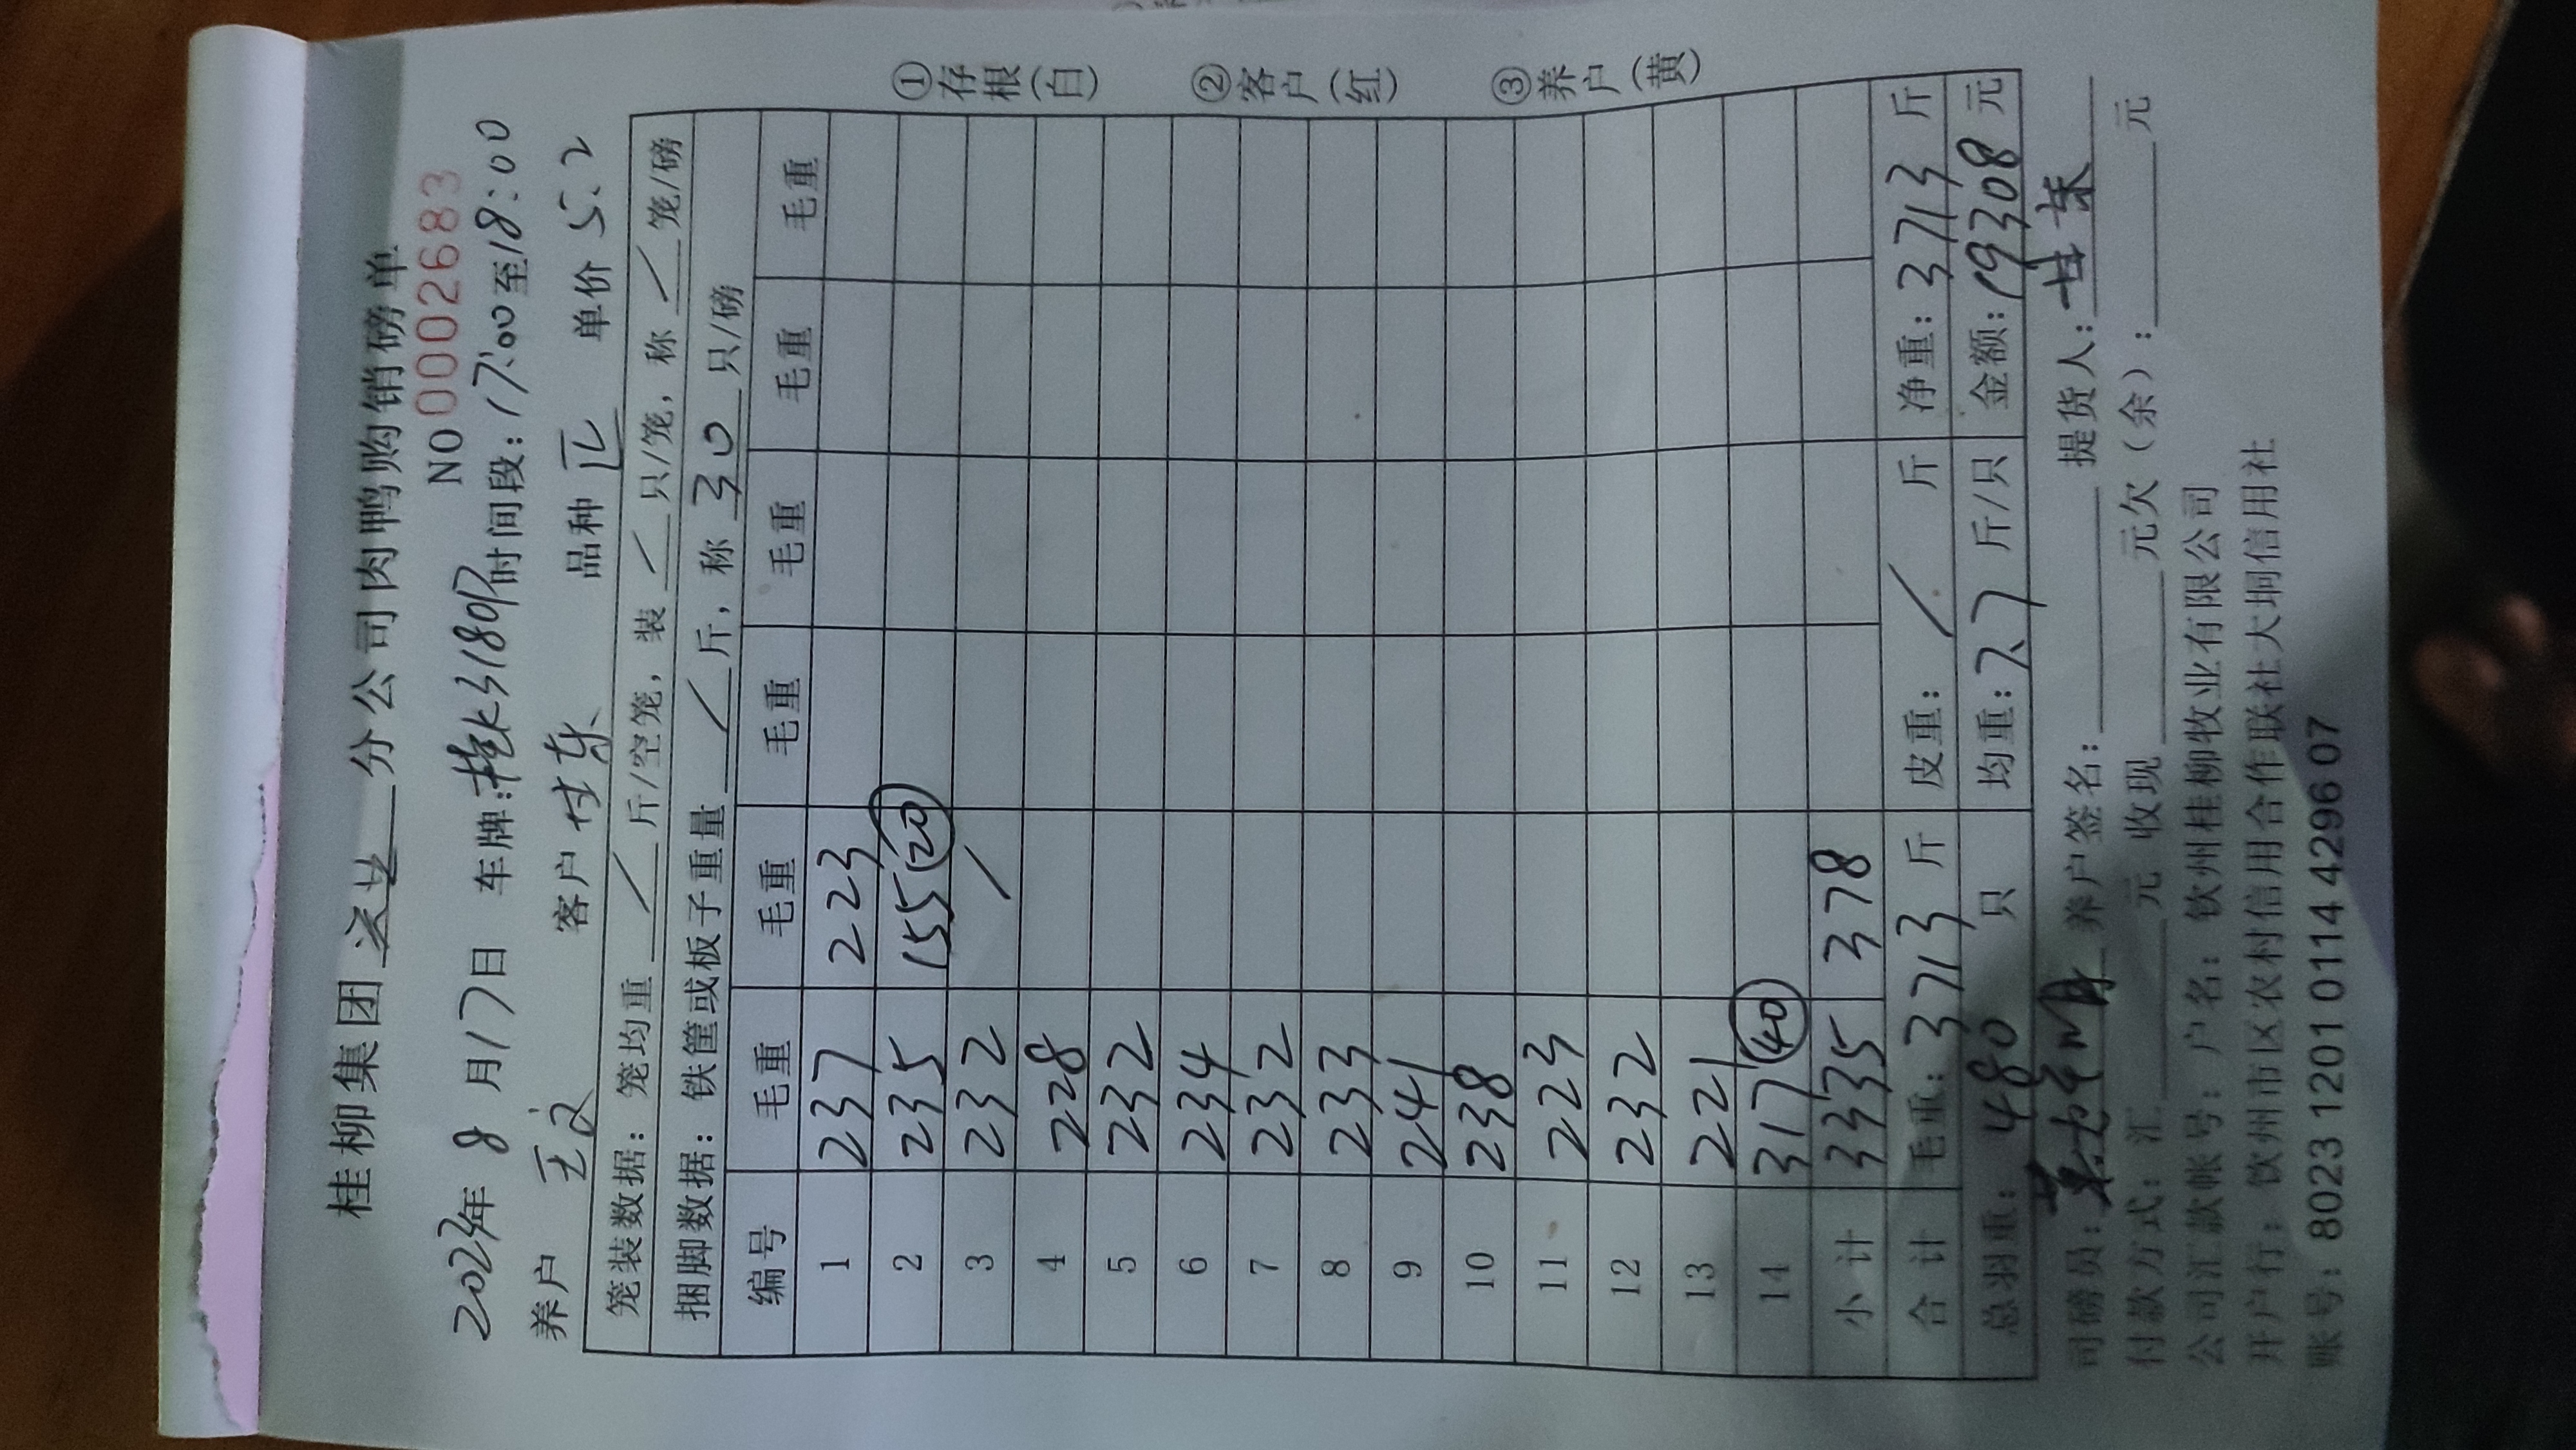 桂柳集团 分公司肉鸭购销磅单
NO 0002683
2023年 8 月 17 日 车牌: 桂K3180 时间段: 17:00 至 18:00
养户 王 客户 甘东 品种 单价 5.2
笼装数据: 笼均重 / 斤/空笼, 装 / 只/笼, 称 / 笼/磅
捆脚数据: 铁筐或板子重量 / 斤, 称 30 只/磅
编号 毛重 毛重 毛重 毛重 毛重 毛重
1 237 223
2 235 155 (20)
3 232 /
4 228
5 232
6 234
7 232
8 233
9 241
10 238
11 223
12 232
13 221
14 317 (40)
小计 3335 378
合计 毛重: 3713 斤 皮重: / 斤 净重: 3713 斤
总羽重: 480 只 均重: 7.7 斤/只 金额: 19308 元
司磅员: 养户签名: 提货人: 甘东
付款方式: 汇 元 收现 元欠(余): 元
公司汇款帐号: 户名: 钦州桂柳牧业有限公司
开户行: 钦州市区农村信用合作联社大垌信用社
账号: 8023 1201 0114 4296 07
①存根(白) ②客户(红) ③养户(黄)